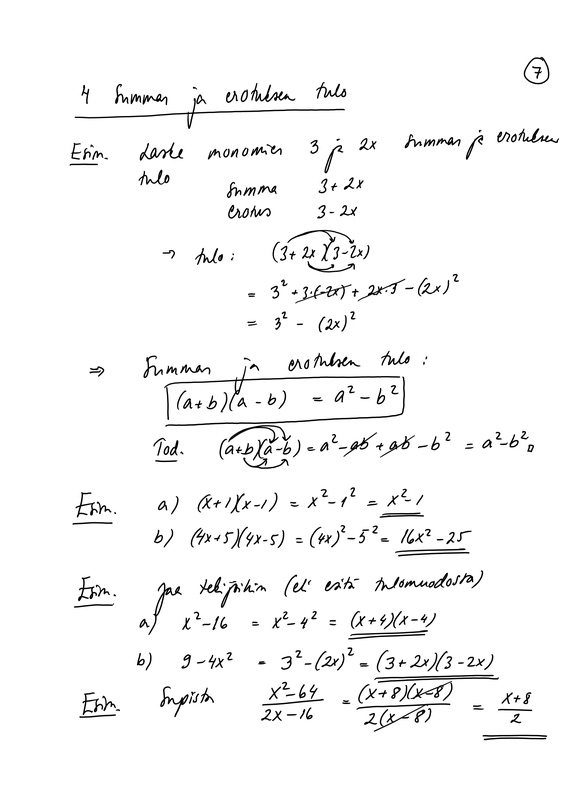 7
4 Summan ja erotuksen tulo
Esim. Laske monomien 3 ja 2x summan ja erotuksen
tulo
Summa 3+2x
Erotus 3-2x
→ tulo: (3+2x)(3-2x)
= 3² + 3·(-2x) + 2x·3 - (2x)²
= 3² - (2x)²
⇒ Summan ja erotuksen tulo:
(a+b)(a-b) = a² - b²
Tod. (a+b)(a-b) = a² - ab + ab - b² = a² - b² □
Esim. a) (x+1)(x-1) = x² - 1² = x² - 1
b) (4x+5)(4x-5) = (4x)² - 5² = 16x² - 25
Esim. Jaa tekijöihin (eli esitä tulomuodossa)
a) x² - 16 = x² - 4² = (x+4)(x-4)
b) 9 - 4x² = 3² - (2x)² = (3+2x)(3-2x)
Esim. Supista (x²-64)/(2x-16) = ((x+8)(x-8))/(2(x-8)) = (x+8)/2